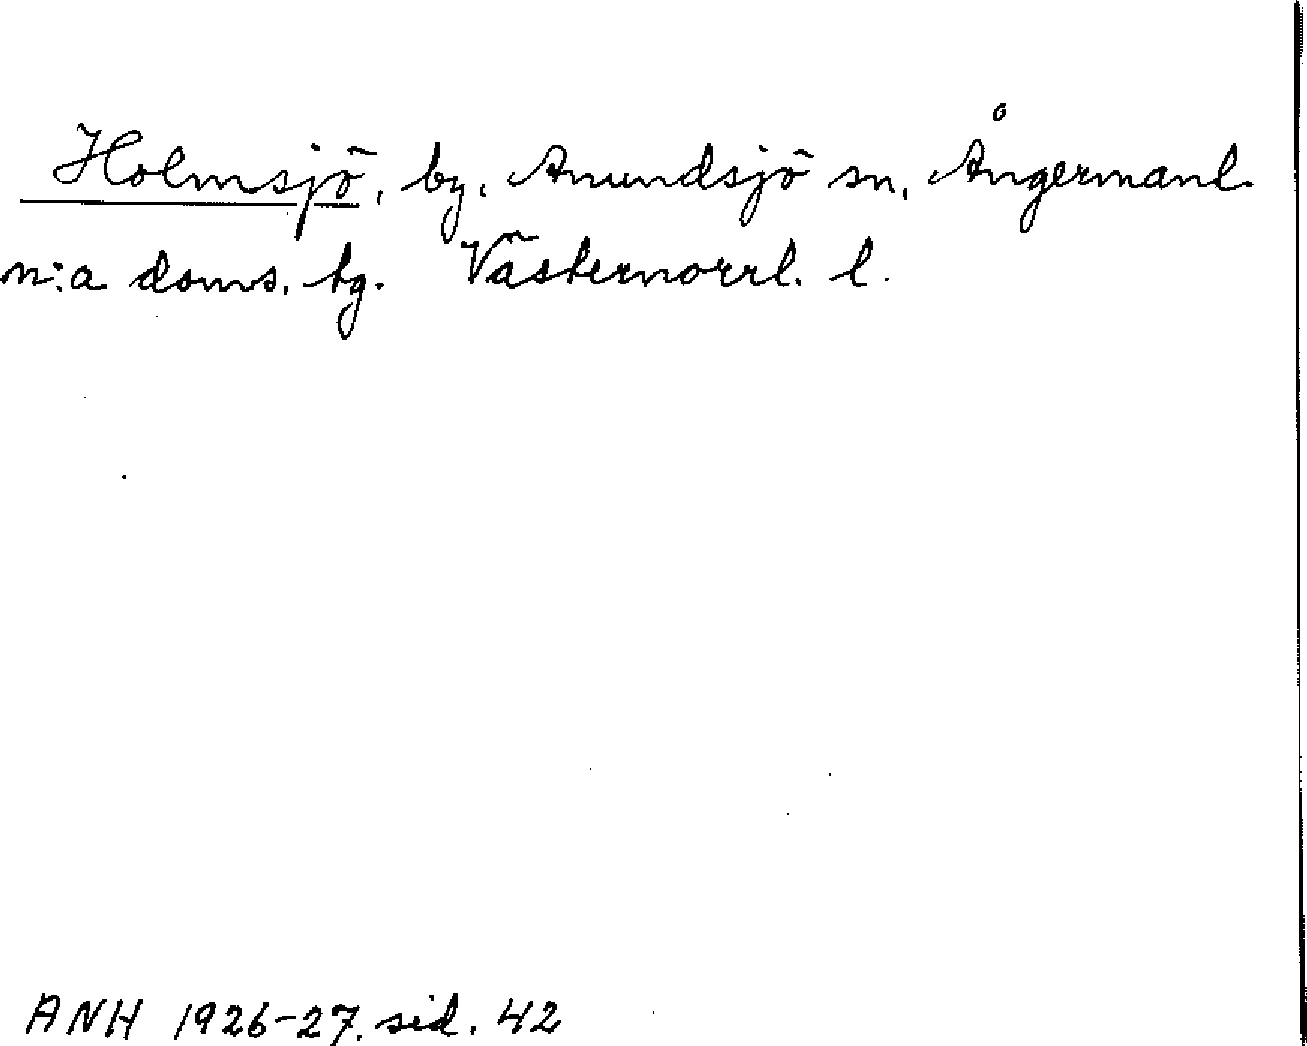 Holmsjö, by, Anundsjö sn, Ångermanl.
n:a doms. tg. Västernorrl. l.
ANH 1926-27, sid. 42